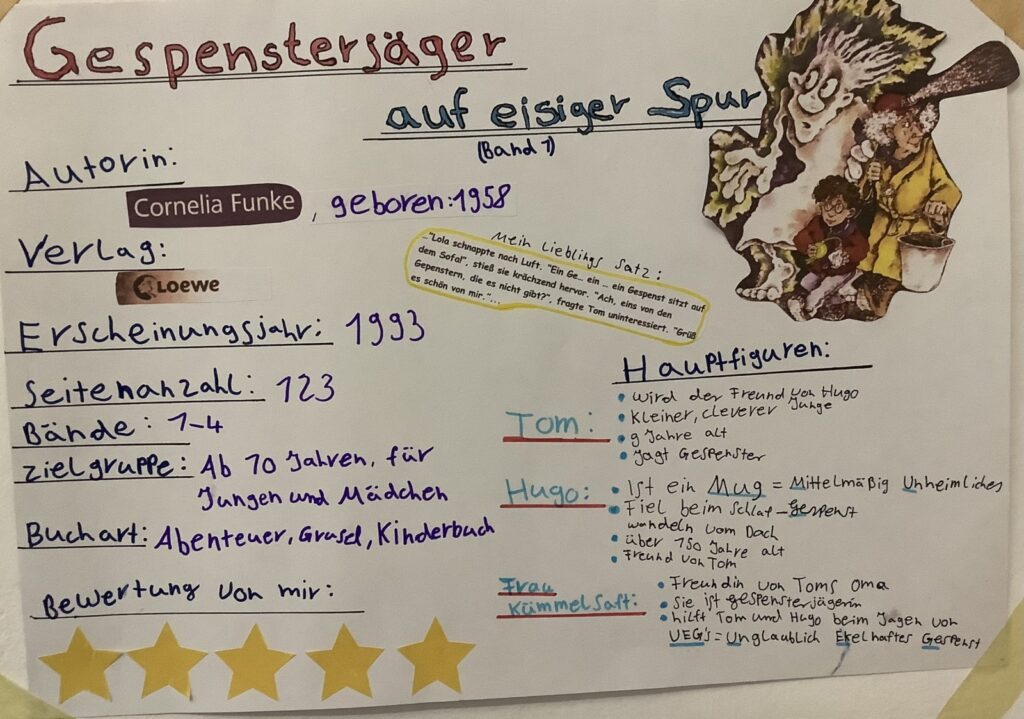 Gespensterjäger
auf eisiger Spur
(Band 1)
Autorin:
Cornelia Funke, geboren: 1958
Verlag:
LOEWE
Mein Lieblings Satz:
..."Lola schnappte nach Luft. "Ein Ge... ein ... ein Gespenst sitzt auf
dem Sofa!", stieß sie krächzend hervor. "Ach, eins von den
Gepenstern, die es nicht gibt?", fragte Tom uninteressiert. "Grüß
es schön von mir."...
Erscheinungsjahr: 1993
Seitenanzahl: 123
Bände: 1-4
Zielgruppe: Ab 10 Jahren, für
Jungen und Mädchen
Buchart: Abenteuer, Grusel, Kinderbuch
Bewertung von mir:
Hauptfiguren:
Tom:
• wird der Freund von Hugo
• Kleiner, cleverer Junge
• 9 Jahre alt
• Jagt Gespenster
Hugo:
• Ist ein Mug = Mittelmäßig Unheimliches
Gespenst
• Fiel beim Schlaf-
wandeln vom Dach
• über 150 Jahre alt
• Freund von Tom
Frau
Kümmelsaft:
• Freundin von Toms Oma
• Sie ist gespensterjägerin
• hilft Tom und Hugo beim Jagen von
UEG's = Unglaublich Ekelhaftes Gespenst